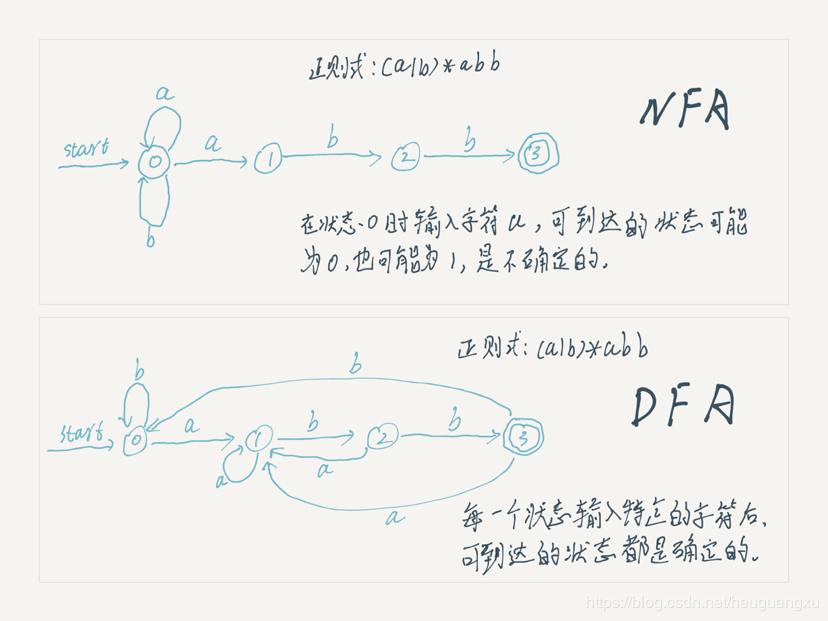 正则式:(a|b)*abb
NFA
a
start
0
a
1
b
2
b
3
b
在状态0时输入字符a,可到达的状态可能
为0,也可能为1,是不确定的.
正则式:(a|b)*abb
DFA
b
b
start
0
a
1
b
2
b
3
a
a
a
每一个状态输入特定的字符后,
可到达的状态都是确定的.
https://blog.csdn.net/heuguangxu